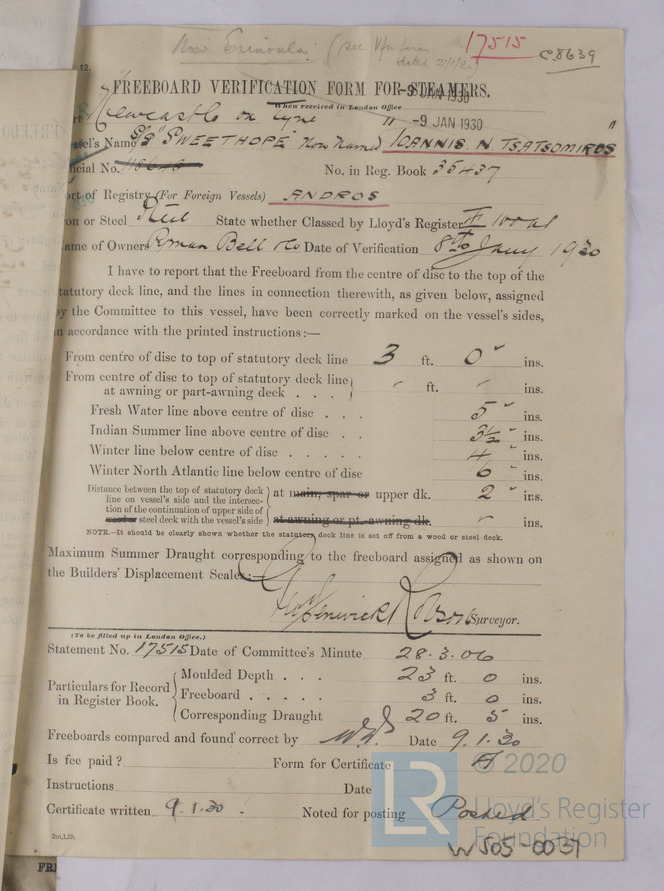 Now Erinoula (see
17515
C.8639
12.
FREEBOARD VERIFICATION FORM FOR STEAMERS.
-9 JAN 1930
When received in London Office
Newcastle on Tyne " -9 JAN 1930
Vessel's Name S/S "SWEETHOPE" Now Named IOANNIS. N. TSATSOMIROS"
cial No. No. in Reg. Book 35437
ort of Registry (For Foreign Vessels) ANDROS
on or Steel Steel State whether Classed by Lloyd's Register 100A1
ame of Owners Bell & Co Date of Verification 8th Jany 1930
I have to report that the Freeboard from the centre of disc to the top of the
tatutory deck line, and the lines in connection therewith, as given below, assigned
by the Committee to this vessel, have been correctly marked on the vessel's sides,
in accordance with the printed instructions:—
From centre of disc to top of statutory deck line 3 ft. 0" ins.
From centre of disc to top of statutory deck line
at awning or part-awning deck . . . " ft. " ins.
Fresh Water line above centre of disc . . . 5" ins.
Indian Summer line above centre of disc . . 3½" ins.
Winter line below centre of disc . . . . . 4" ins.
Winter North Atlantic line below centre of disc 6" ins.
Distance between the top of statutory deck
line on vessel's side and the intersec-
tion of the continuation of upper side of
wood or steel deck with the vessel's side
at main, spar or upper dk. 2" ins.
at awning or pt. awning dk. " ins.
NOTE.—It should be clearly shown whether the statutory deck line is set off from a wood or steel deck.
Maximum Summer Draught corresponding to the freeboard assigned as shown on
the Builders' Displacement Scale:—
Fenwick Robson Surveyor.
(To be filled up in London Office.)
Statement No. 17515 Date of Committee's Minute 28.3.06
Particulars for Record
in Register Book.
Moulded Depth . . . 23 ft. 0 ins.
Freeboard . . . . . 3 ft. 0 ins.
Corresponding Draught 20 ft. 5 ins.
Freeboards compared and found correct by Date 9.1.30
Is fee paid? Form for Certificate
Instructions Date
Certificate written 9.1.30 . Noted for posting Posted
2m,1,29.
© 2020
LR
Lloyd's Register
Foundation
W503-0037
FRE